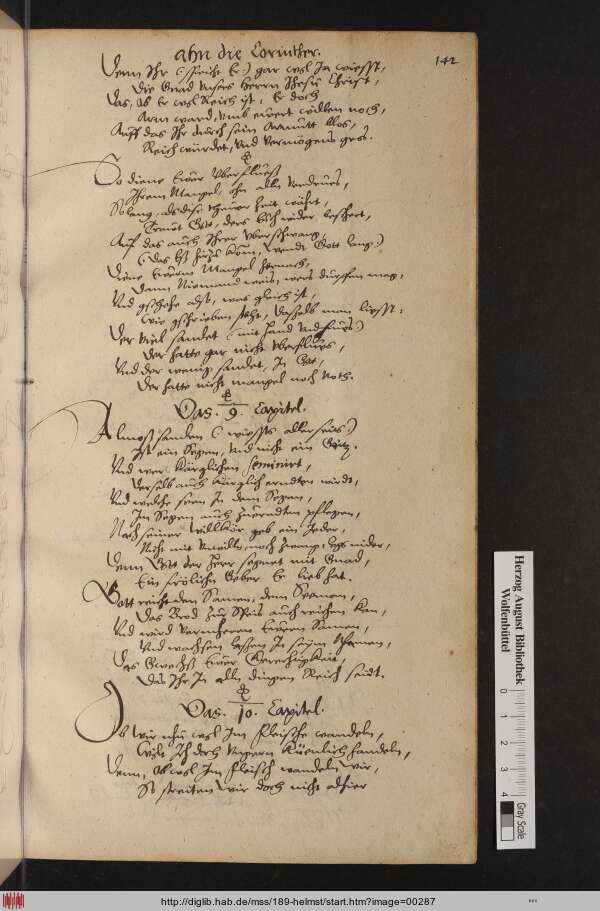 ahn die Corinther.
142
Denn Ihr (sprich Er) gar wol Ia wiesst,
Die Gnad Unsers Herrn Jhesu Christ,
Das, Ob Er wol Reich ist, Er doch
Arm ward, Umb euert willen noch,
Auff das Ihr durch sein Armutt blos,
Reich würdet, Und Vermögens gros.
So diene Ewer Uberfluest
Ihrem Mangel, ohn alle
So lang, als dise theuer Zeit währt,
Gott, ders Euch wider beschert,
Auf das auch Ihrer Uberschwang,
(das Gott lang)
Diene Ewerm Mangel hernach,
Dann Niemand weis, wers dürffen mag,
Und geschehe also, was gleich ist,
Wie geschrieben steht, deshalb man liesst:
Der Viel samlet (mit Hand Und)
Der hatte gar nicht Uberflues,
Und der wenig samlet, In Got,
Der hatte nicht mangel noch Noth.
Das. 9. Capitel.
Almosn senden (wiessts allerseits)
Ist ein Segen, Und nicht ein Geitz.
Und wer Kärglichen Seminirt,
Derselb auch Kärglich erndten wirdt,
Und welche seen In dem Segen,
Im Segen auch zuerndten pflegen,
Nach seiner Willkör geb ein Jeder,
Nicht mit Unwilln, noch zwang, legs nider,
Denn Gott der Herr segnet mit Gnad,
Ein frölichn Geber Er lieb hat.
Gott reicht den Samen, dem Seeman,
Das Brod zur Speis auch reichen Kan,
Und wird Vermehren Eueren Samen,
Und wachsen lassen In seinem Namen,
Das Gwechs Ewer Gerechtigkeit,
Das Ihr In alln dingen Reich seidt.
Das. 10. Capitel.
Ob wir nhu wol Im Fleische wandeln,
Will Ich doch Kürtzlich handeln,
Denn, Ob wol Im Fleisch wandeln wir,
So streiten wir doch nicht alhier
Herzog August Bibliothek
Wolfenbüttel
0 1 2 3 4
Gray Scale
http://diglib.hab.de/mss/189-helmst/start.htm?image=00287